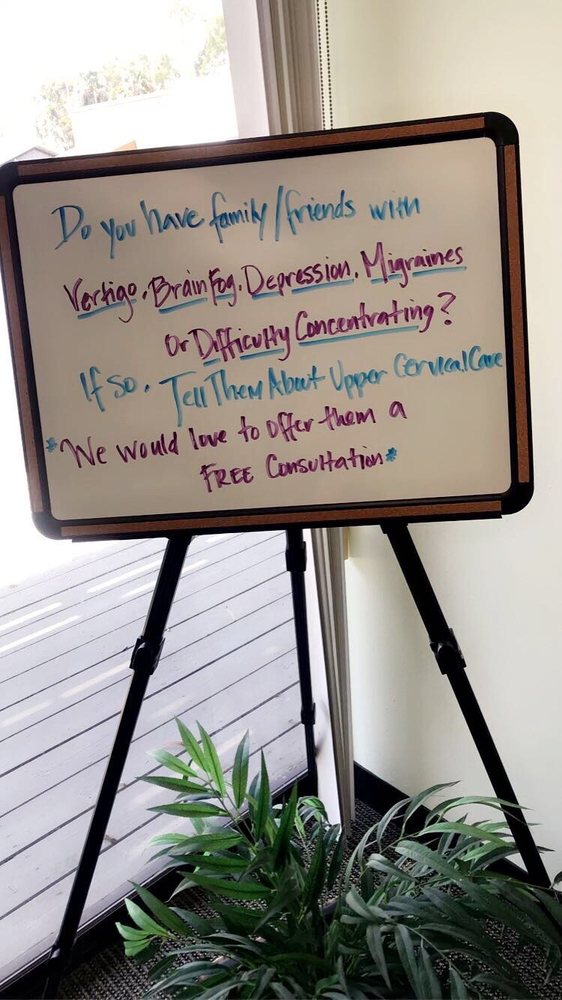 Do you have family/friends with
Vertigo, Brain Fog, Depression, Migraines
or Difficulty Concentrating?
If so, Tell Them About Upper Cervical Care
*We would love to offer them a
FREE Consultation*